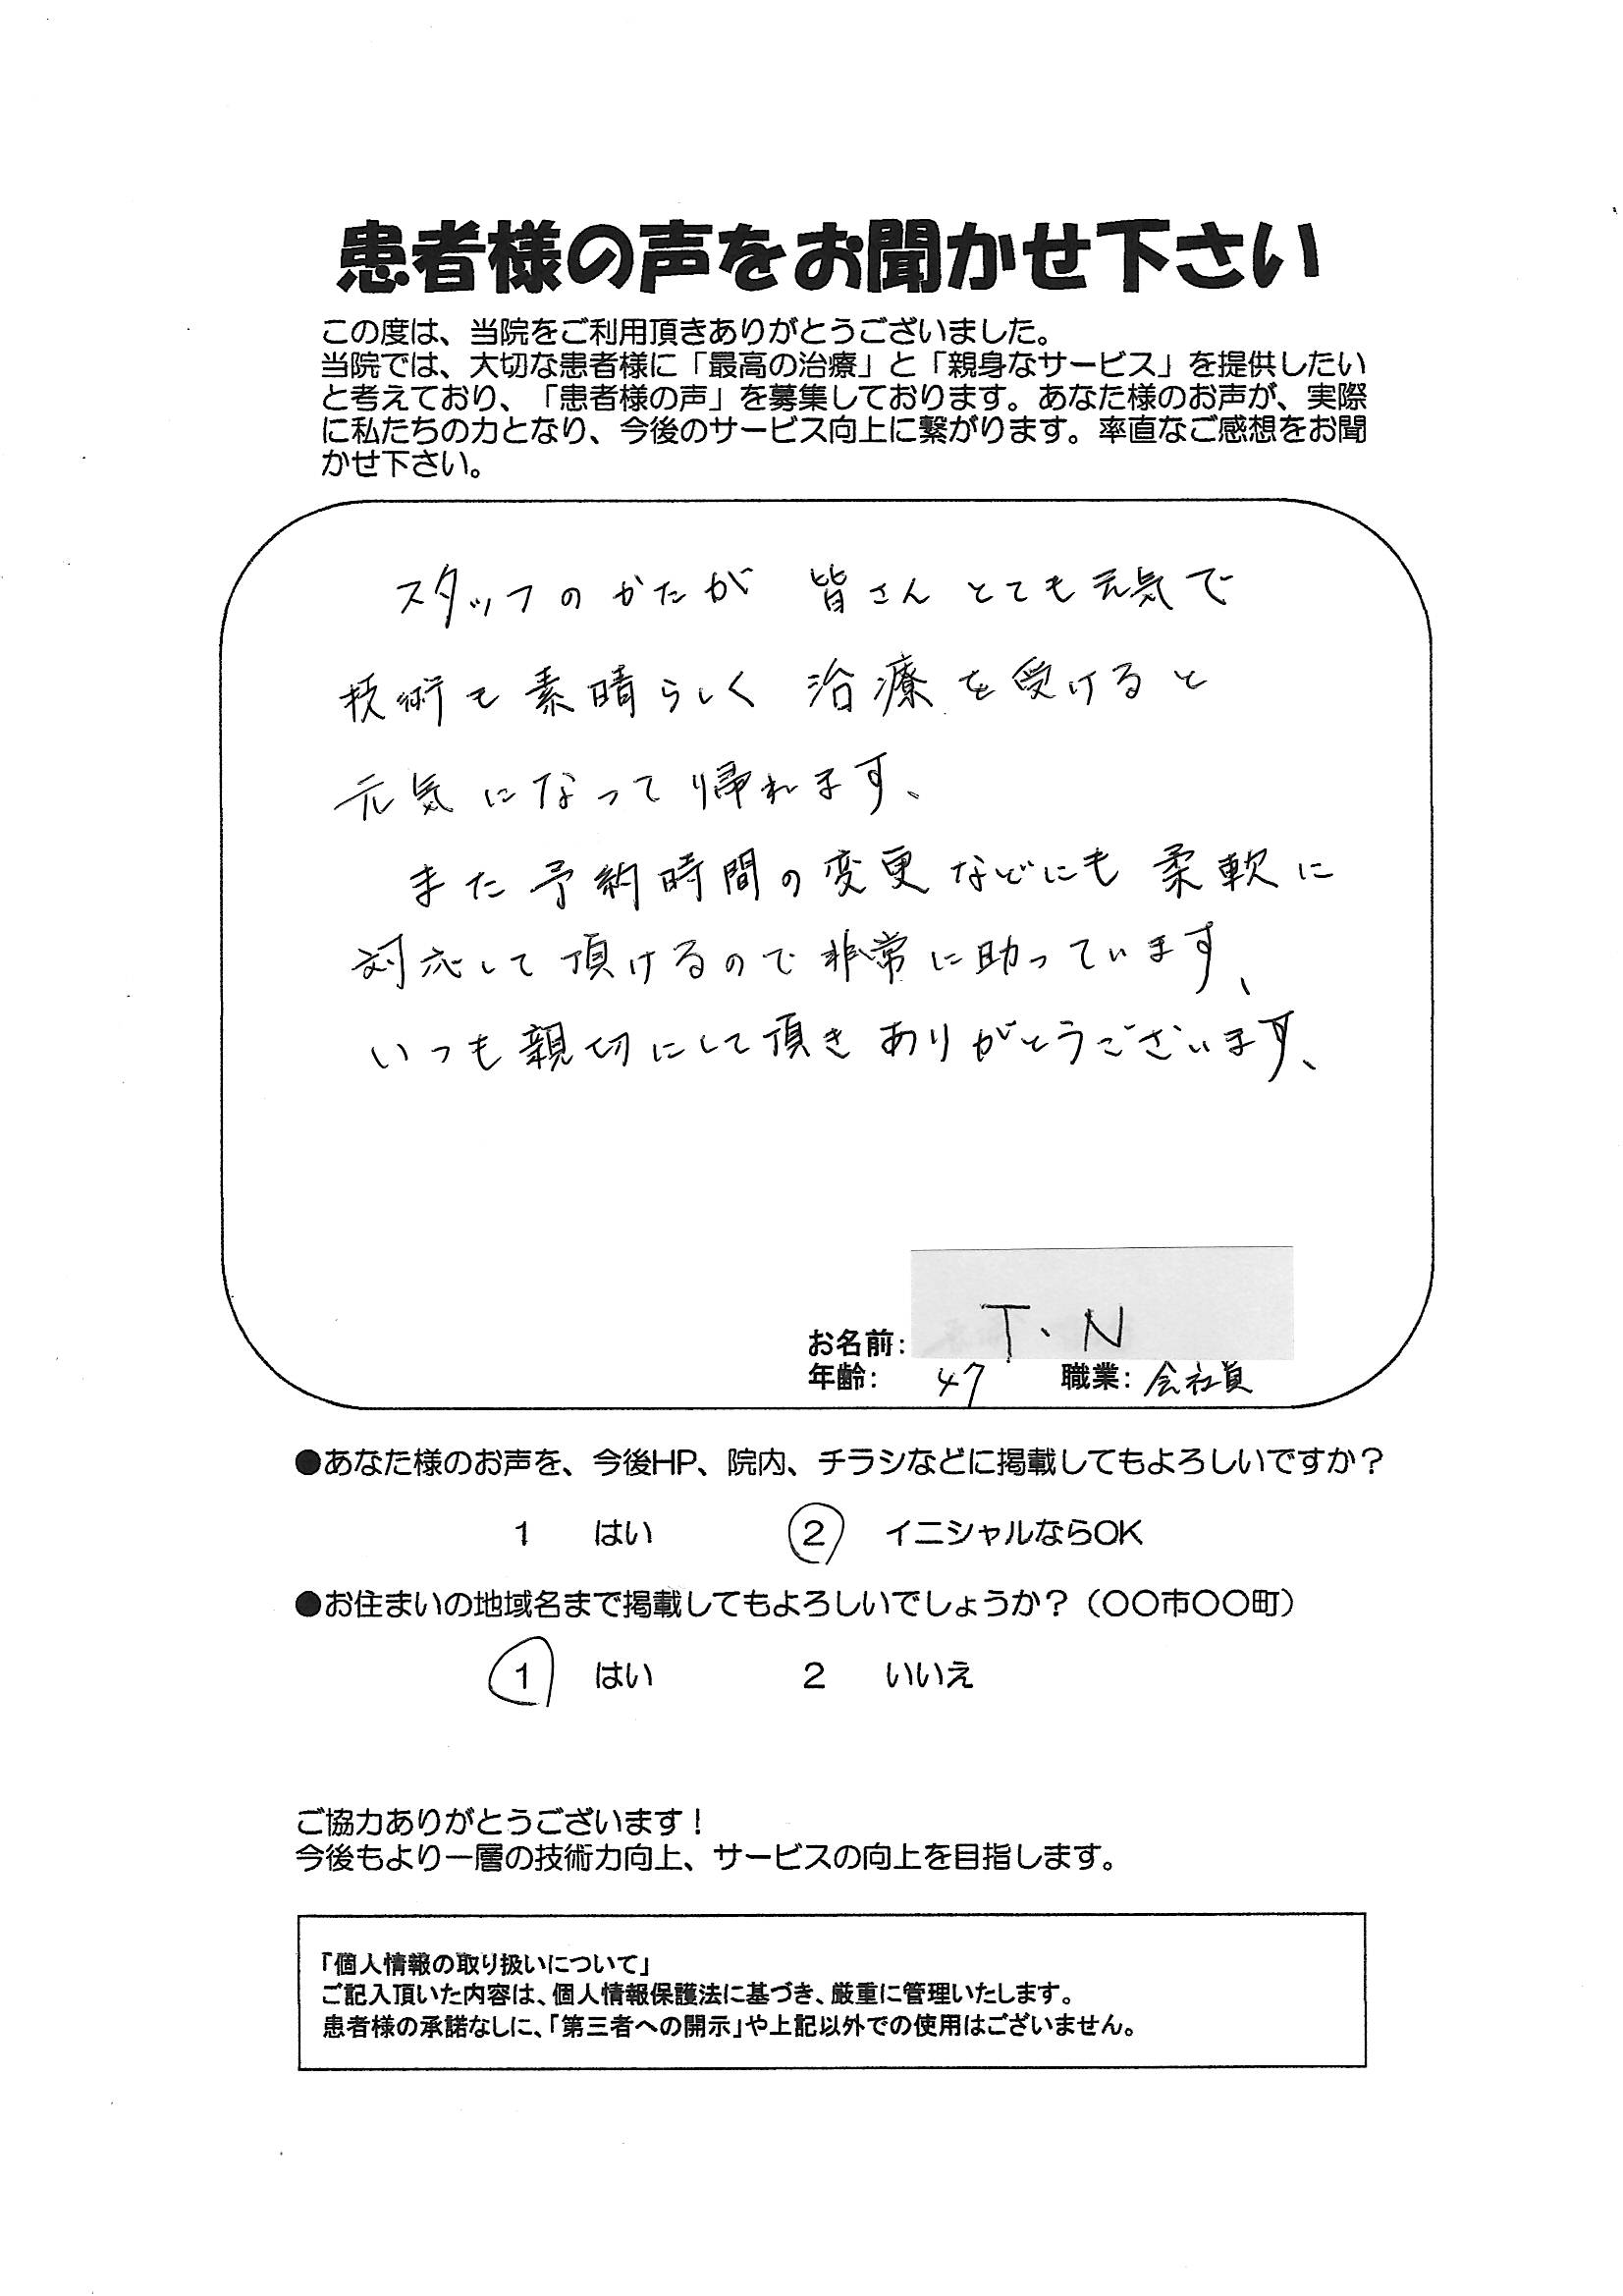 患者様の声をお聞かせ下さい
この度は、当院をご利用頂きありがとうございました。
当院では、大切な患者様に「最高の治療」と「親身なサービス」を提供したい
と考えており、「患者様の声」を募集しております。あなた様のお声が、実際
に私たちの力となり、今後のサービス向上に繋がります。率直なご感想をお聞
かせ下さい。
スタッフのかたが 皆さん とても元気で
技術も素晴らしく 治療を受けると
元気になって帰れます、
また予約時間の変更などにも柔軟に
対応して頂けるので非常に助っています、
いつも親切にして頂きありがとうございます、
お名前: T、N
年齢: 47 職業: 会社員
●あなた様のお声を、今後HP、院内、チラシなどに掲載してもよろしいですか？
1 はい 2 イニシャルならOK
●お住まいの地域名まで掲載してもよろしいでしょうか？（〇〇市〇〇町）
1 はい 2 いいえ
ご協力ありがとうございます！
今後もより一層の技術力向上、サービスの向上を目指します。
「個人情報の取り扱いについて」
ご記入頂いた内容は、個人情報保護法に基づき、厳重に管理いたします。
患者様の承諾なしに、「第三者への開示」や上記以外での使用はございません。